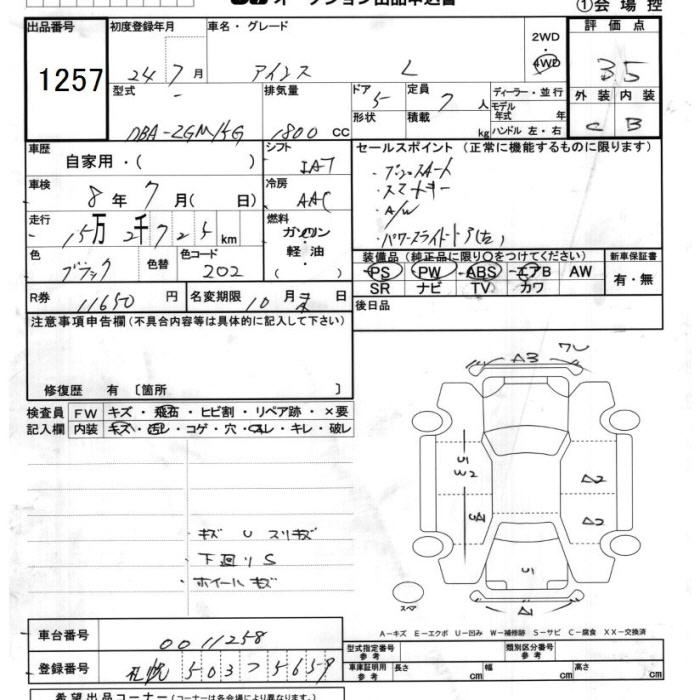 オークション出品申込書
①会場控
出品番号 初度登録年月 車名・グレード 2WD 評価点
1257 24 7月 アイシス L 4WD 3.5
型式 排気量 ドア 定員 ディーラー・並行 外装 内装
DBA-ZGM 1800 cc 5 7 人 モデル年式 年 C B
形状 積載 kg ハンドル 左・右
車歴 シフト セールスポイント (正常に機能するものに限ります)
自家用・( ) IAT
車検 冷房 ・プッシュスタート
8年 7月( 日) AAC ・スマートキー
走行 燃料 ・A/W
15万 2千725 km ガソリン ・パワースライドドア(左)
軽油
色 色替 色コード 装備品 (純正品に限り○をつけてください) 新車保証書
ブラック 202 PS PW ABS エアB AW 有・無
SR ナビ TV カワ
R券 11650 円 名変期限 10月 末 日 後日品
注意事項申告欄(不具合内容等は具体的に記入して下さい)
修復歴 有 〔箇所 〕
検査員 FW キズ・飛石・ヒビ割・リペア跡・×要
記入欄 内装 キズ・汚レ・コゲ・穴・スレ・キレ・破レ
A3
5
W2
A2
A2
5
・キズ U スリキズ
・下廻り S
・ホイールキズ
スペア
A−キズ E−エクボ U−凹み W−補修跡 S−サビ C−腐食 XX−交換済
車台番号 0011258
型式指定番号 参考 類別区分番号 参考
登録番号 札幌 503 つ 5659
車庫証明用 参考 長さ cm 幅 cm 高さ cm
希望出品コーナー (コーナーは各会場により異なります。)